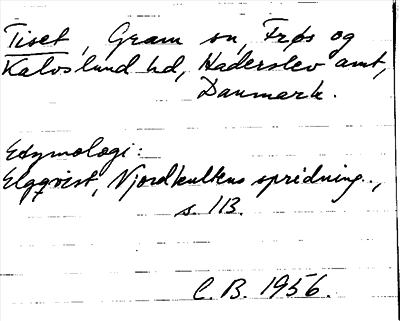 Tiset, Gram sn, Frøs og
Kalvslund hd, Haderslev amt,
Danmark.
Etymologi:
Elgqvist, Njordkultens spridning.,
s. 113.
C. B. 1956.